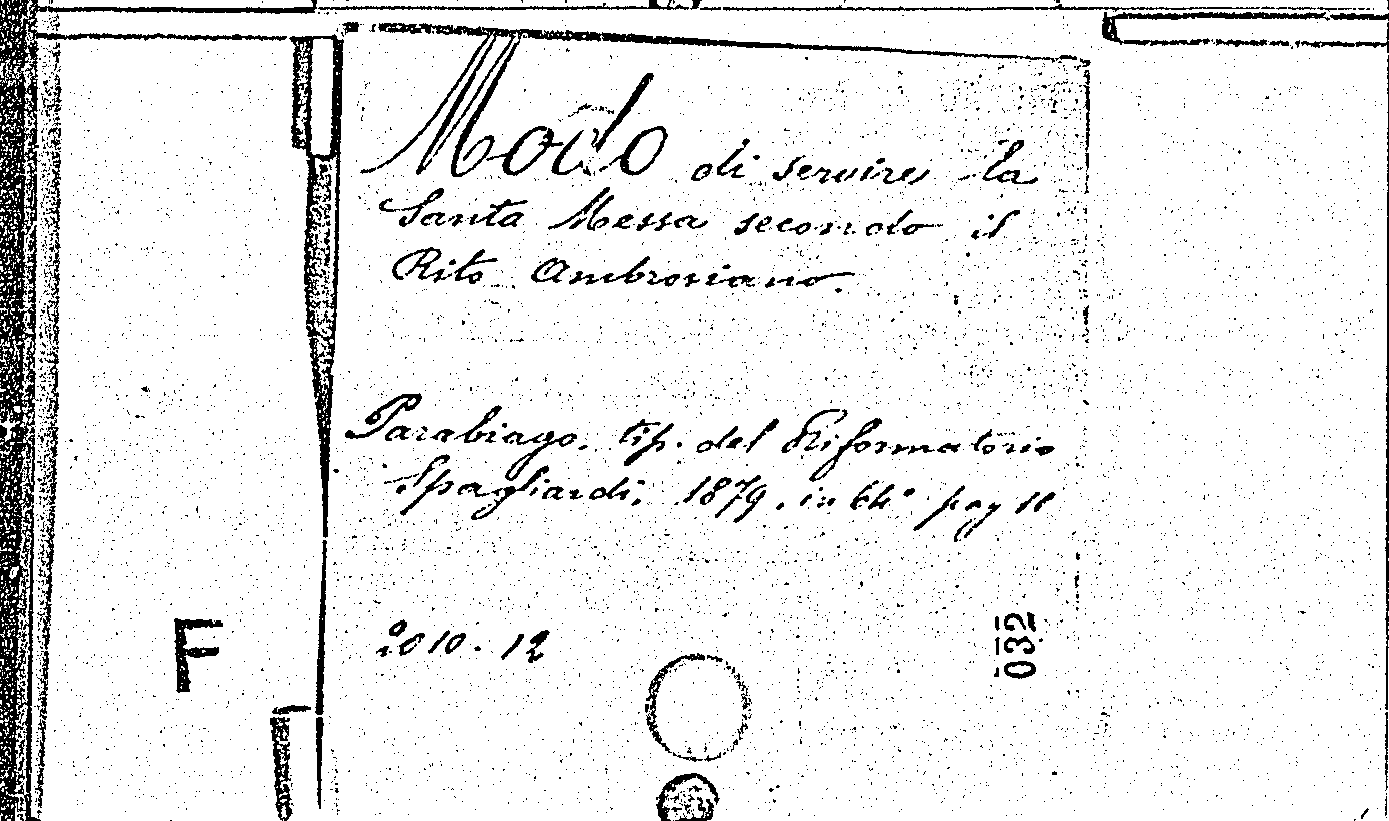 Modo di servire la
Santa Messa secondo il
Rito Ambrosiano.
Parabiago. tip. del Riformatorio
Spagliardi. 1879. in 64° pag
2010.12
032
F